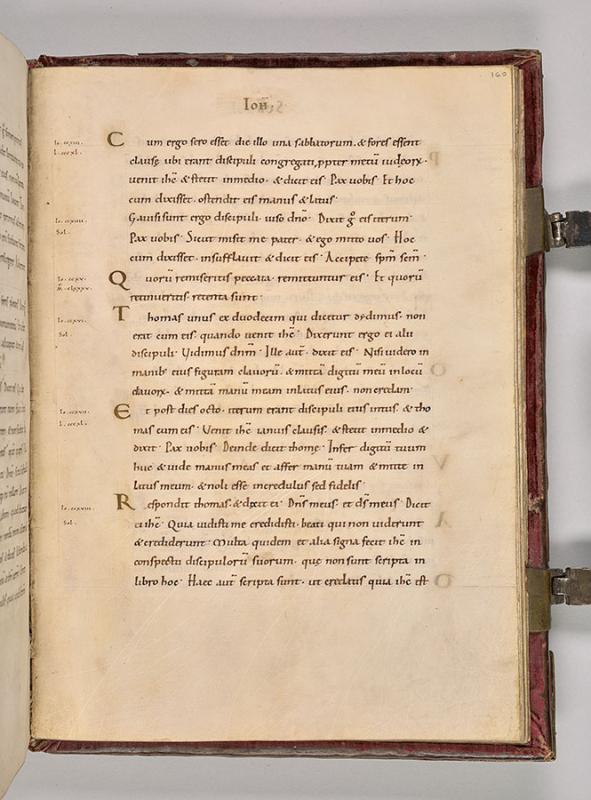 160
Ioħ;
Cum ergo sero esset die illo una sabbatorum. & fores essent
clausę ubi erant discipuli congregati, ꝓpter metū iudeorꝝ.
uenit ihc̄ & stetit inmedio. & dicit eis Pax uobis Et hoc
cum dixisset. ostendit eis manus & latus.
Gauisi sunt ergo discipuli. uiso dn̄o. Dixit g̊ eis iterum
Pax uobis. Sicut misit me pater. & ego mitto uos. Hoc
cum dixisset. insufflauit & dicit eis. Accipete sp̄m sc̄m.
Quorū remiseritis peccata. remittuntur eis. Et quorū
retinueritis retenta sunt.
Thomas unus ex duodecim qui dicitur dydimus. non
erat cum eis. quando uenit ihc̄. Dixerunt ergo ei alii
discipuli. Vidimus dn̄m. Ille aut̄. dixit eis. Nisi uidero in
manib; eius figuram clauorū. & mittā digitū meū inlocū
clauorꝝ. & mittā manū meam inlatus eius. non credam.
Et post dies octo. iterum erant discipuli eius intus. & tho
mas cum eis. Uenit ihc̄ ianuis clausis. & stetit inmedio &
dixit. Pax uobis Deinde dicit thomę. Infer digitū tuum
huc & uide manus meas et affer manū tuam & mitte in
latus meum. & noli esse incredulus sed fidelis.
Respondit thomas. & dixit ei. Dn̄s meus. et ds̄ meus Dicit
ei ihc̄. Quia uidisti me credidisti. beati qui non uiderunt
& crediderunt. Multa quidem et alia signa fecit ihc̄ in
conspectu discipulorū suorum. quę non sunt scripta in
libro hoc. Haec aut̄ scripta sunt. ut credatis quia ihc̄ est